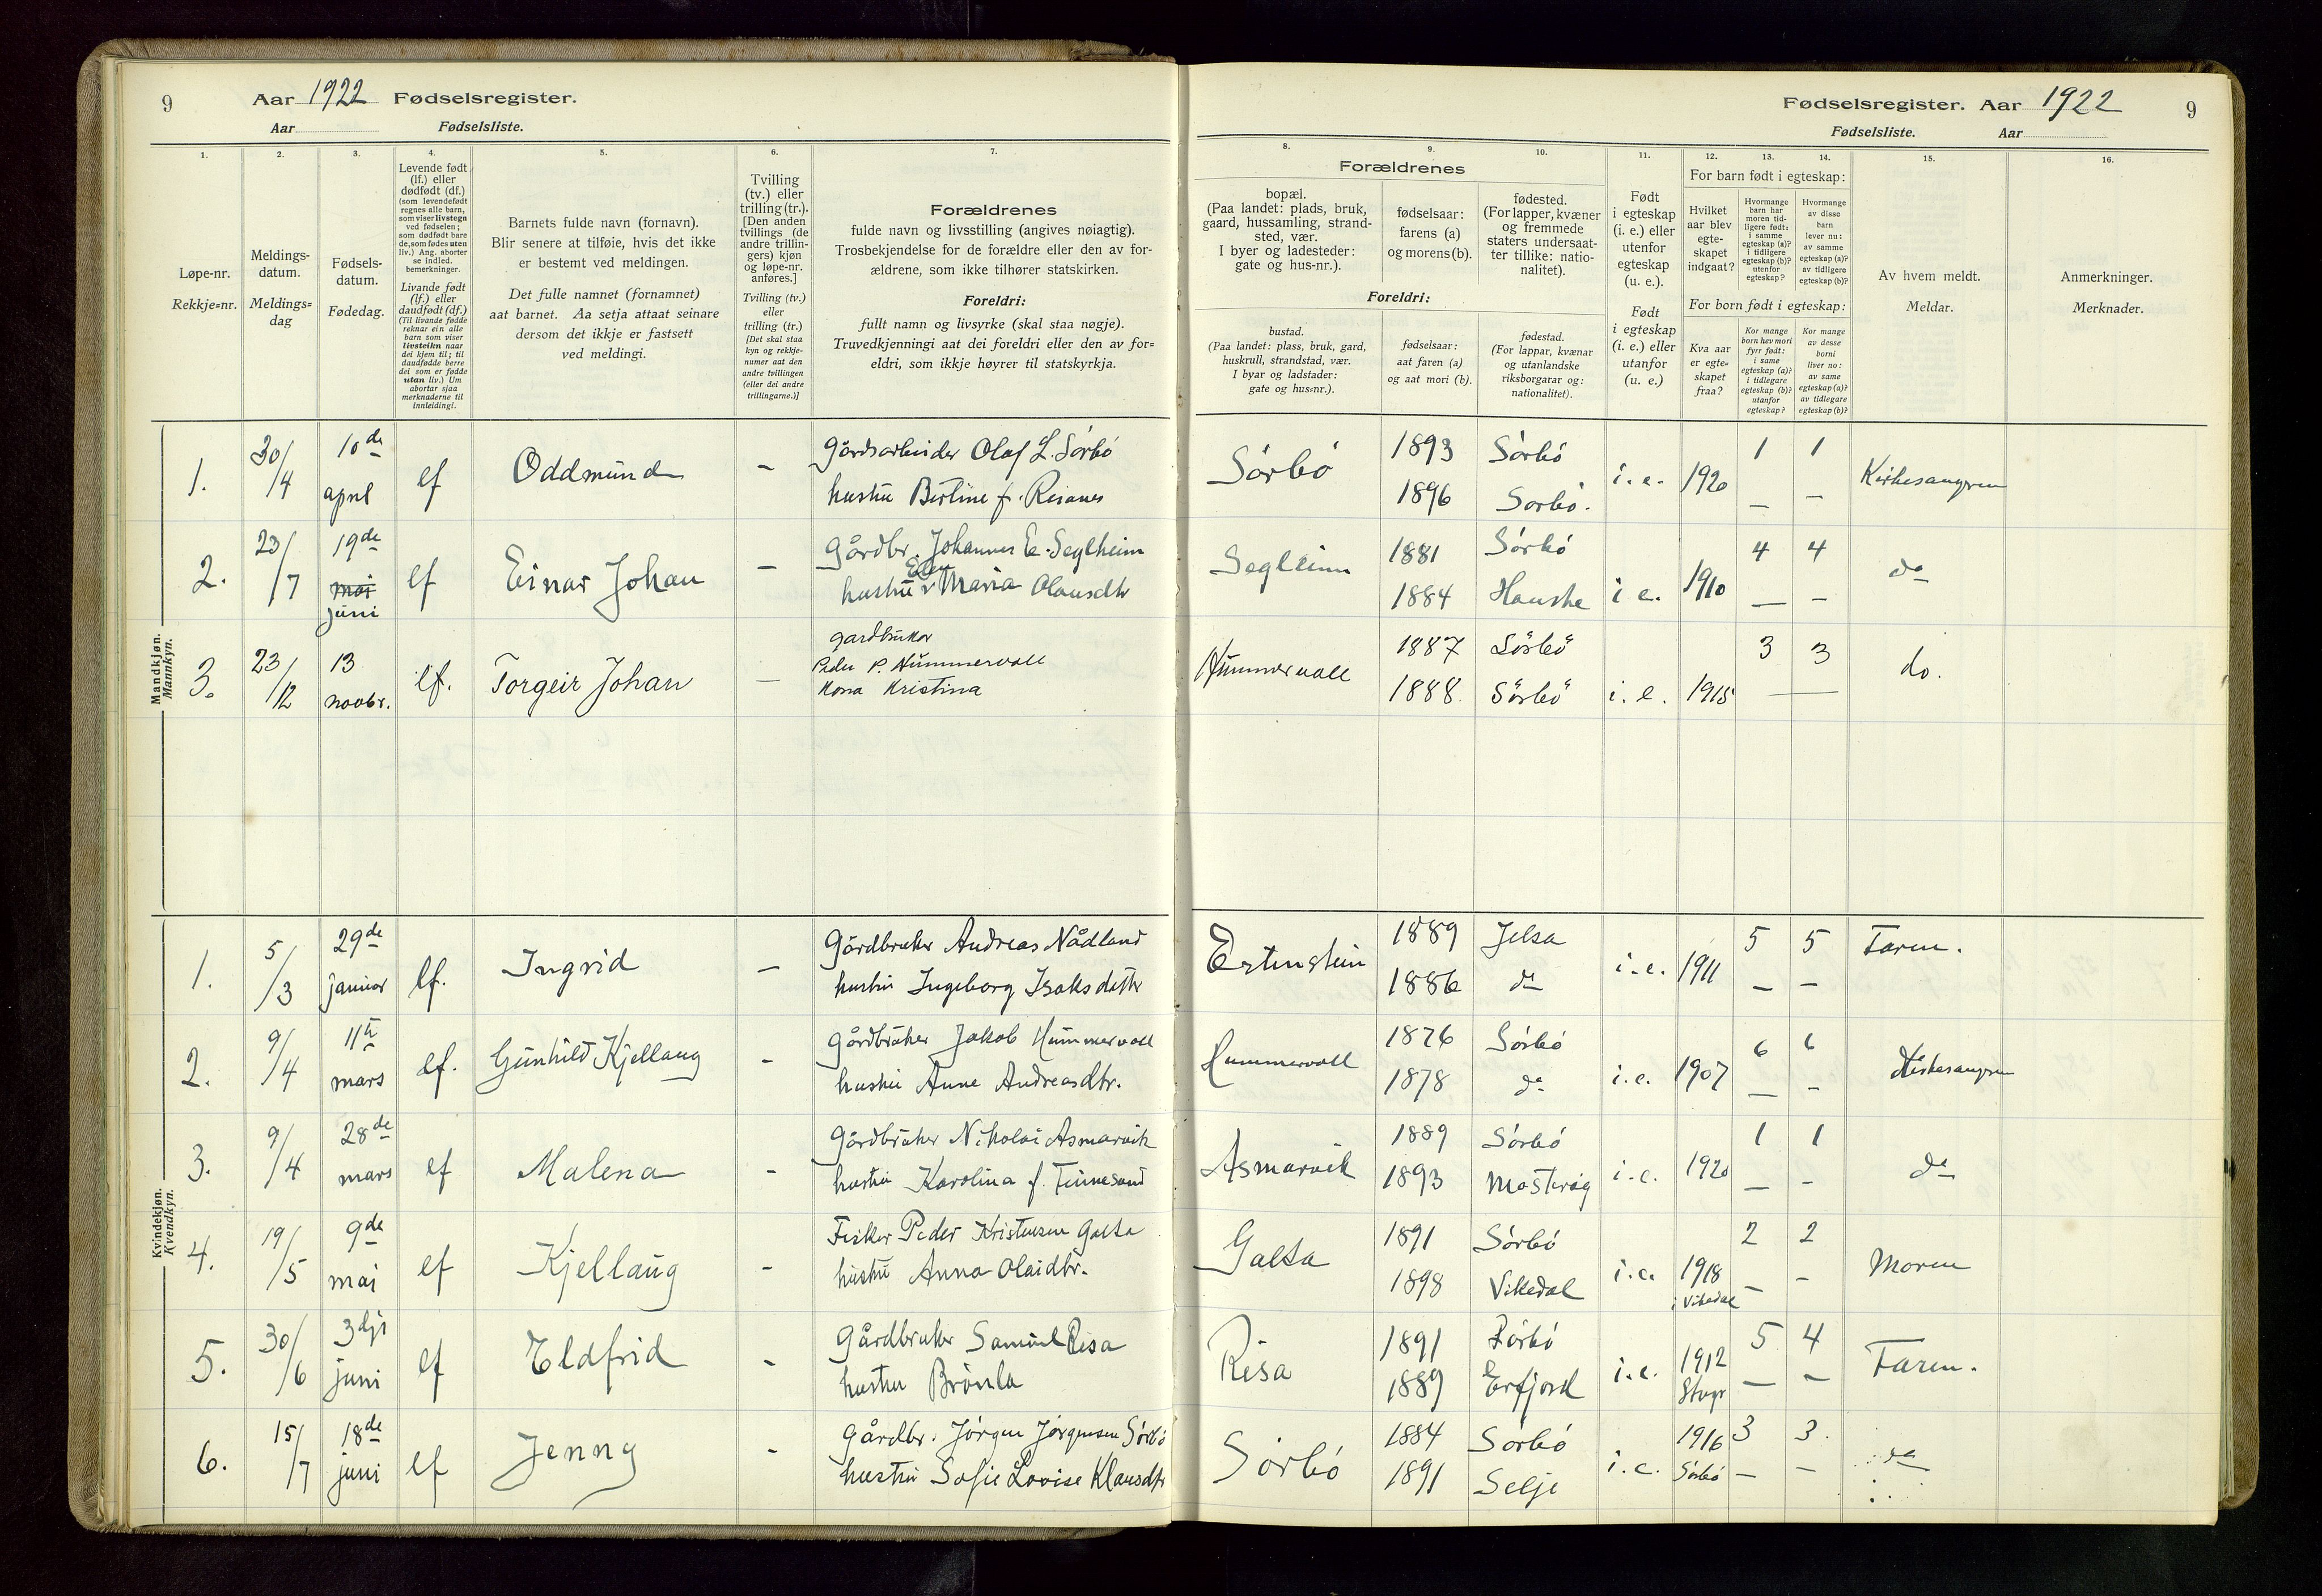 9
Aar 1922 Fødselsregister.
Aar Fødselsliste.
Fødselsregister. Aar 1922
9
Fødselsliste. Aar
1.
2.
3.
4.
5.
6.
7.
8.
9.
10.
11.
12.
13.
14.
15.
16.
Løpe-nr.
Rekkje=nr.
Meldings-
datum.
Meldings=
dag
Fødsels-
datum.
Fødedag.
Levende født
(lf.) eller
dødfødt (df.)
(som levendefødt
regnes alle barn,
som viser livstegn
ved fødselen;
som dødfødt bare
de, som fødes uten
liv.) Ang. aborter
se indled.
bemerkninger.
Livande født
(lf.) eller
daudfødt (df.)
(Til livande fødde
reknar ein alle
barn som viser
livsteikn naar
dei kjem til; til
daudfødde berre
dei som er fødde
utan liv.) Um
abortar sjaa
merknaderne til
innleidingi.
Barnets fulde navn (fornavn).
Blir senere at tilføie, hvis det ikke
er bestemt ved meldingen.
Det fulle namnet (fornamnet)
aat barnet. Aa setja attaat seinare
dersom det ikkje er fastsett
ved meldingi.
Tvilling
(tv.) eller
trilling (tr.).
[Den anden
tvillings (de
andre trillin-
gers) kjøn
og løpe-nr.
anføres.]
Tvilling (tv.)
eller
trilling (tr.)
[Det skal staa
kyn og rekkje-
numer aat den
andre tvillingen
(eller dei andre
trillingarne.)]
Forældrenes
fulde navn og livsstilling (angives nøiagtig).
Trosbekjendelse for de forældre eller den av for-
ældrene, som ikke tilhører statskirken.
Foreldri:
fullt namn og livsyrke (skal staa nøgje).
Truvedkjenningi aat dei foreldri eller den av for=
eldri, som ikkje høyrer til statskyrkja.
Forældrenes
bopæl.
(Paa landet: plads, bruk,
gaard, hussamling, strand-
sted, vær.
I byer og ladesteder:
gate og hus-nr.).
fødselsaar:
farens (a)
og morens (b).
fødested.
(For lapper, kvæner
og fremmede
staters undersaat-
ter tillike: natio-
nalitet).
Foreldri:
bustad.
(Paa landet: plass, bruk, gard,
huskrull, strandstad, vær.
I byar og ladstader:
gate og hus=nr.).
fødselsaar:
aat faren (a)
og aat mori (b).
fødestad.
(For lappar, kvænar
og utanlandske
riksborgarar og:
nationalitet).
Født
i egteskap
(i. e.) eller
utenfor
egteskap
(u. e.).
Født
i egteskap
(i. e.) eller
utanfor
(u. e.)
For barn født i egteskap:
Hvilket
aar blev
egte-
skapet
indgaat?
Hvormange
barn har
moren tid-
ligere født:
i samme
egteskap (a)?
i tidligere
egteskap (b)?
utenfor
egteskap?
Hvormange
av disse
barn
lever nu:
av samme
egteskap (a)?
av tidligere
egteskap (b)?
For born født i egteskap:
Kva aar
er egte-
skapet
fraa?
Kor mange
born hev mori
fyrr født:
i same
egteskap (a)?
i tidlegare
egteskap (b)?
utanfor
egteskap?
Kor mange
av desse
borni
liver no:
av same
egteskap (a)?
av tidlegare
egteskap (b)?
Av hvem meldt.
Meldar.
Anmerkninger.
Merknader.
Mandkjøn.
Mannkyn.
1. 30/4 10de april lf Oddmund – Gårdsarbeider Olaf L. Sørbø
hustru Bertine f. Reianes
Sørbø 1893 Sørbø i. e. 1920 1 1 Kirkesangeren
1896 Sørbø. – –
2. 23/7 19de mai juni lf Einar Johan – Gårdbr. Johannes E. Seglheim
hustru Elen Maria Olausdtr
Segleim 1881 Sørbø 4 4 do
1884 Hauske i e. 1910 – –
3. 23/12 13 novbr. lf. Torgeir Johan – gardbruker
Peder P. Hummervoll
Kona Kristina
Hummervoll 1887 Sørbø 3 3 do.
1888. Sørbø i. e. 1915 –
Kvindekjøn.
Kvendkyn.
1. 5/3 29de januar lf. Ingrid – Gårdbruker Andreas Nådland
hustru Ingeborg Isaksdatter
Østenstein 1889 Jelsa i. e. 1911 5 5 Faren.
1886 do – –
2. 9/4 11te mars lf. Gunhild Kjellaug – Gårdbruker Jakob Hummervoll
hustru Anne Andreasdtr.
Hummervoll 1876 Sørbø i. e. 1907 6 6 Kirkesangeren
1878 do – –
3. 9/4 28de mars lf Malena – Gårdbruker Nikolai Asmarvik
hustru Karolina f. Finnesand
Asmarvik 1889 Sørbø i. e. 1920 1 1 do
1893 Mosterøy – –
4. 19/5 9de mai lf Kjellaug – Fisker Peder Kristensen Galta
hustru Anna Olaidtr.
Galta 1891 Sørbø i. e. 1918 2 2 Moren
1898 Vikedal i Vikedal – –
5. 30/6 3dje juni lf Eldfrid – Gårdbruker Samuel Risa
hustru Brønla
Risa 1891 Sørbø i. e. 1912 5 4 Faren.
1889 Erfjord – –
6. 15/7 18de juni lf Jenny – Gårdbr. Jørgen Jørgensen Sørbø
hustru Sofie Lovise Klausdtr
Sørbø 1884 Sørbø i. e. 1916 3 3. do
1891 Selje Sørbø – –